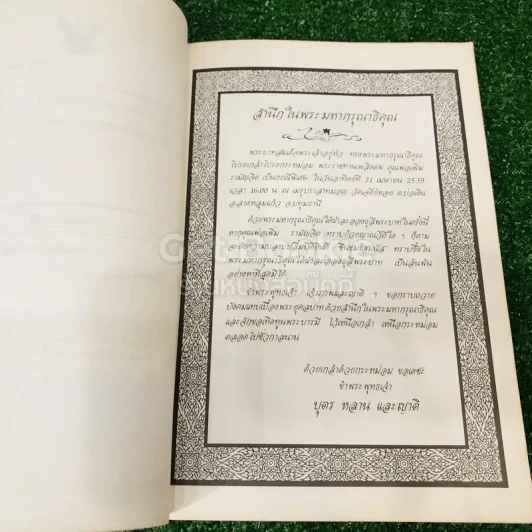 สำนึกในพระมหากรุณาธิคุณ
พระบาทสมเด็จพระเจ้าอยู่หัว ทรงพระมหากรุณาธิคุณ
โปรดเกล้าโปรดกระหม่อม พระราชทานเพลิงศพ คุณพ่อเพิ่ม
รามัญจิต เป็นกรณีพิเศษ ในวันอาทิตย์ที่ 21 เมษายน 2539
เวลา 16.00 น. ณ เมรุปราสาทมอญ วัดเจดีย์ทอง ต.บ่อเงิน
อ.ลาดหลุมแก้ว จ.ปทุมธานี
ด้วยพระมหากรุณาธิคุณใต้ฝ่าละอองธุลีพระบาทในครั้งนี้
หากคุณพ่อเพิ่ม รามัญจิต ทราบด้วยญาณวิถีใด ๆ ก็ตาม
จะยังความปลาบปลื้มปีติยินดี ชื่นชมโสมนัส ทราบซึ้งใน
พระมหากรุณาธิคุณใต้ฝ่าละอองธุลีพระบาท เป็นล้นพ้น
อย่างหาที่สุดมิได้
ข้าพระพุทธเจ้า เจ้าภาพและญาติ ๆ ขอกราบถวาย
บังคมแทบเบื้องพระยุคลบาท ด้วยสำนึกในพระมหากรุณาธิคุณ
และจักขอเทิดทูนพระบารมี ไว้เหนือเกล้า เหนือกระหม่อม
ตลอดไปชั่วกาลนาน
ด้วยเกล้าด้วยกระหม่อม ขอเดชะ
ข้าพระพุทธเจ้า
บุตร หลาน และญาติ